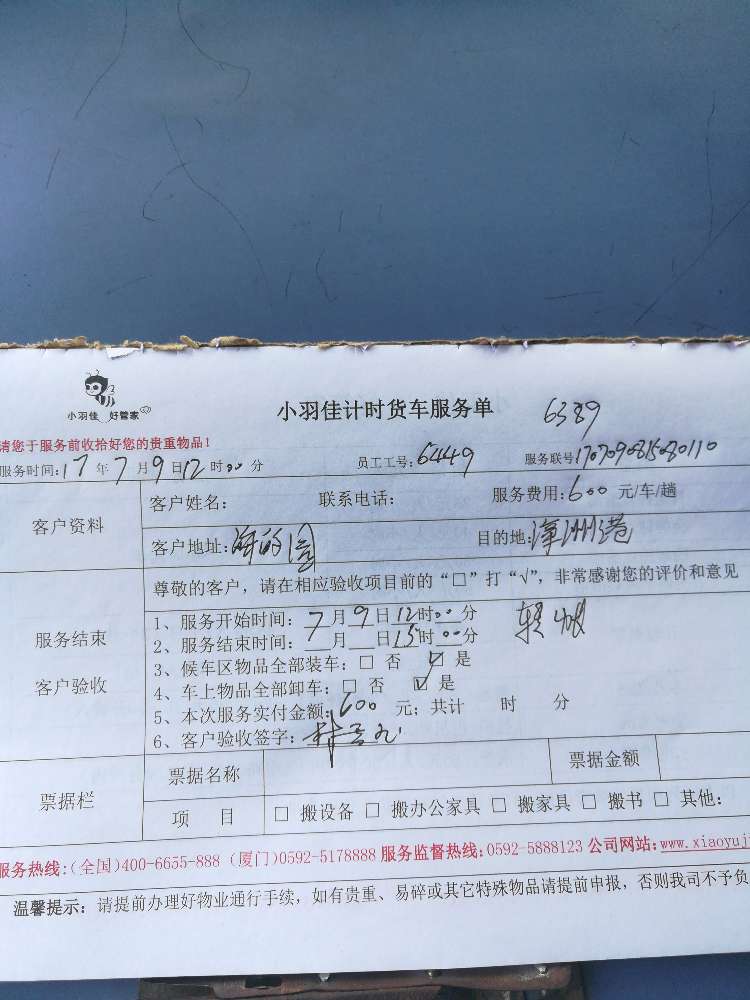 小羽佳 好管家
小羽佳计时货车服务单 6389
请您于服务前收拾好您的贵重物品！
服务时间：17年7月9日12时00分 员工工号：6449 服务联号1707090815080110
客户资料
客户姓名： 联系电话： 服务费用：600 元/车/趟
客户地址： 目的地：漳州港
服务结束
客户验收
尊敬的客户，请在相应验收项目前的“□”打“√”，非常感谢您的评价和意见
1、服务开始时间：7月9日12时00分
2、服务结束时间：__月__日15时00分
3、候车区物品全部装车：□ 否 ☑ 是
4、车上物品全部卸车：□ 否 ☑ 是
5、本次服务实付金额：600 元；共计 时 分
6、客户验收签字：
票据栏
票据名称 票据金额
项 目 □ 搬设备 □ 搬办公家具 □ 搬家具 □ 搬书 □ 其他：
服务热线：(全国)400-6655-888 (厦门)0592-5178888 服务监督热线：0592-5888123 公司网站：www.xiaoyuj
温馨提示：请提前办理好物业通行手续，如有贵重、易碎或其它特殊物品请提前申报，否则我司不予负